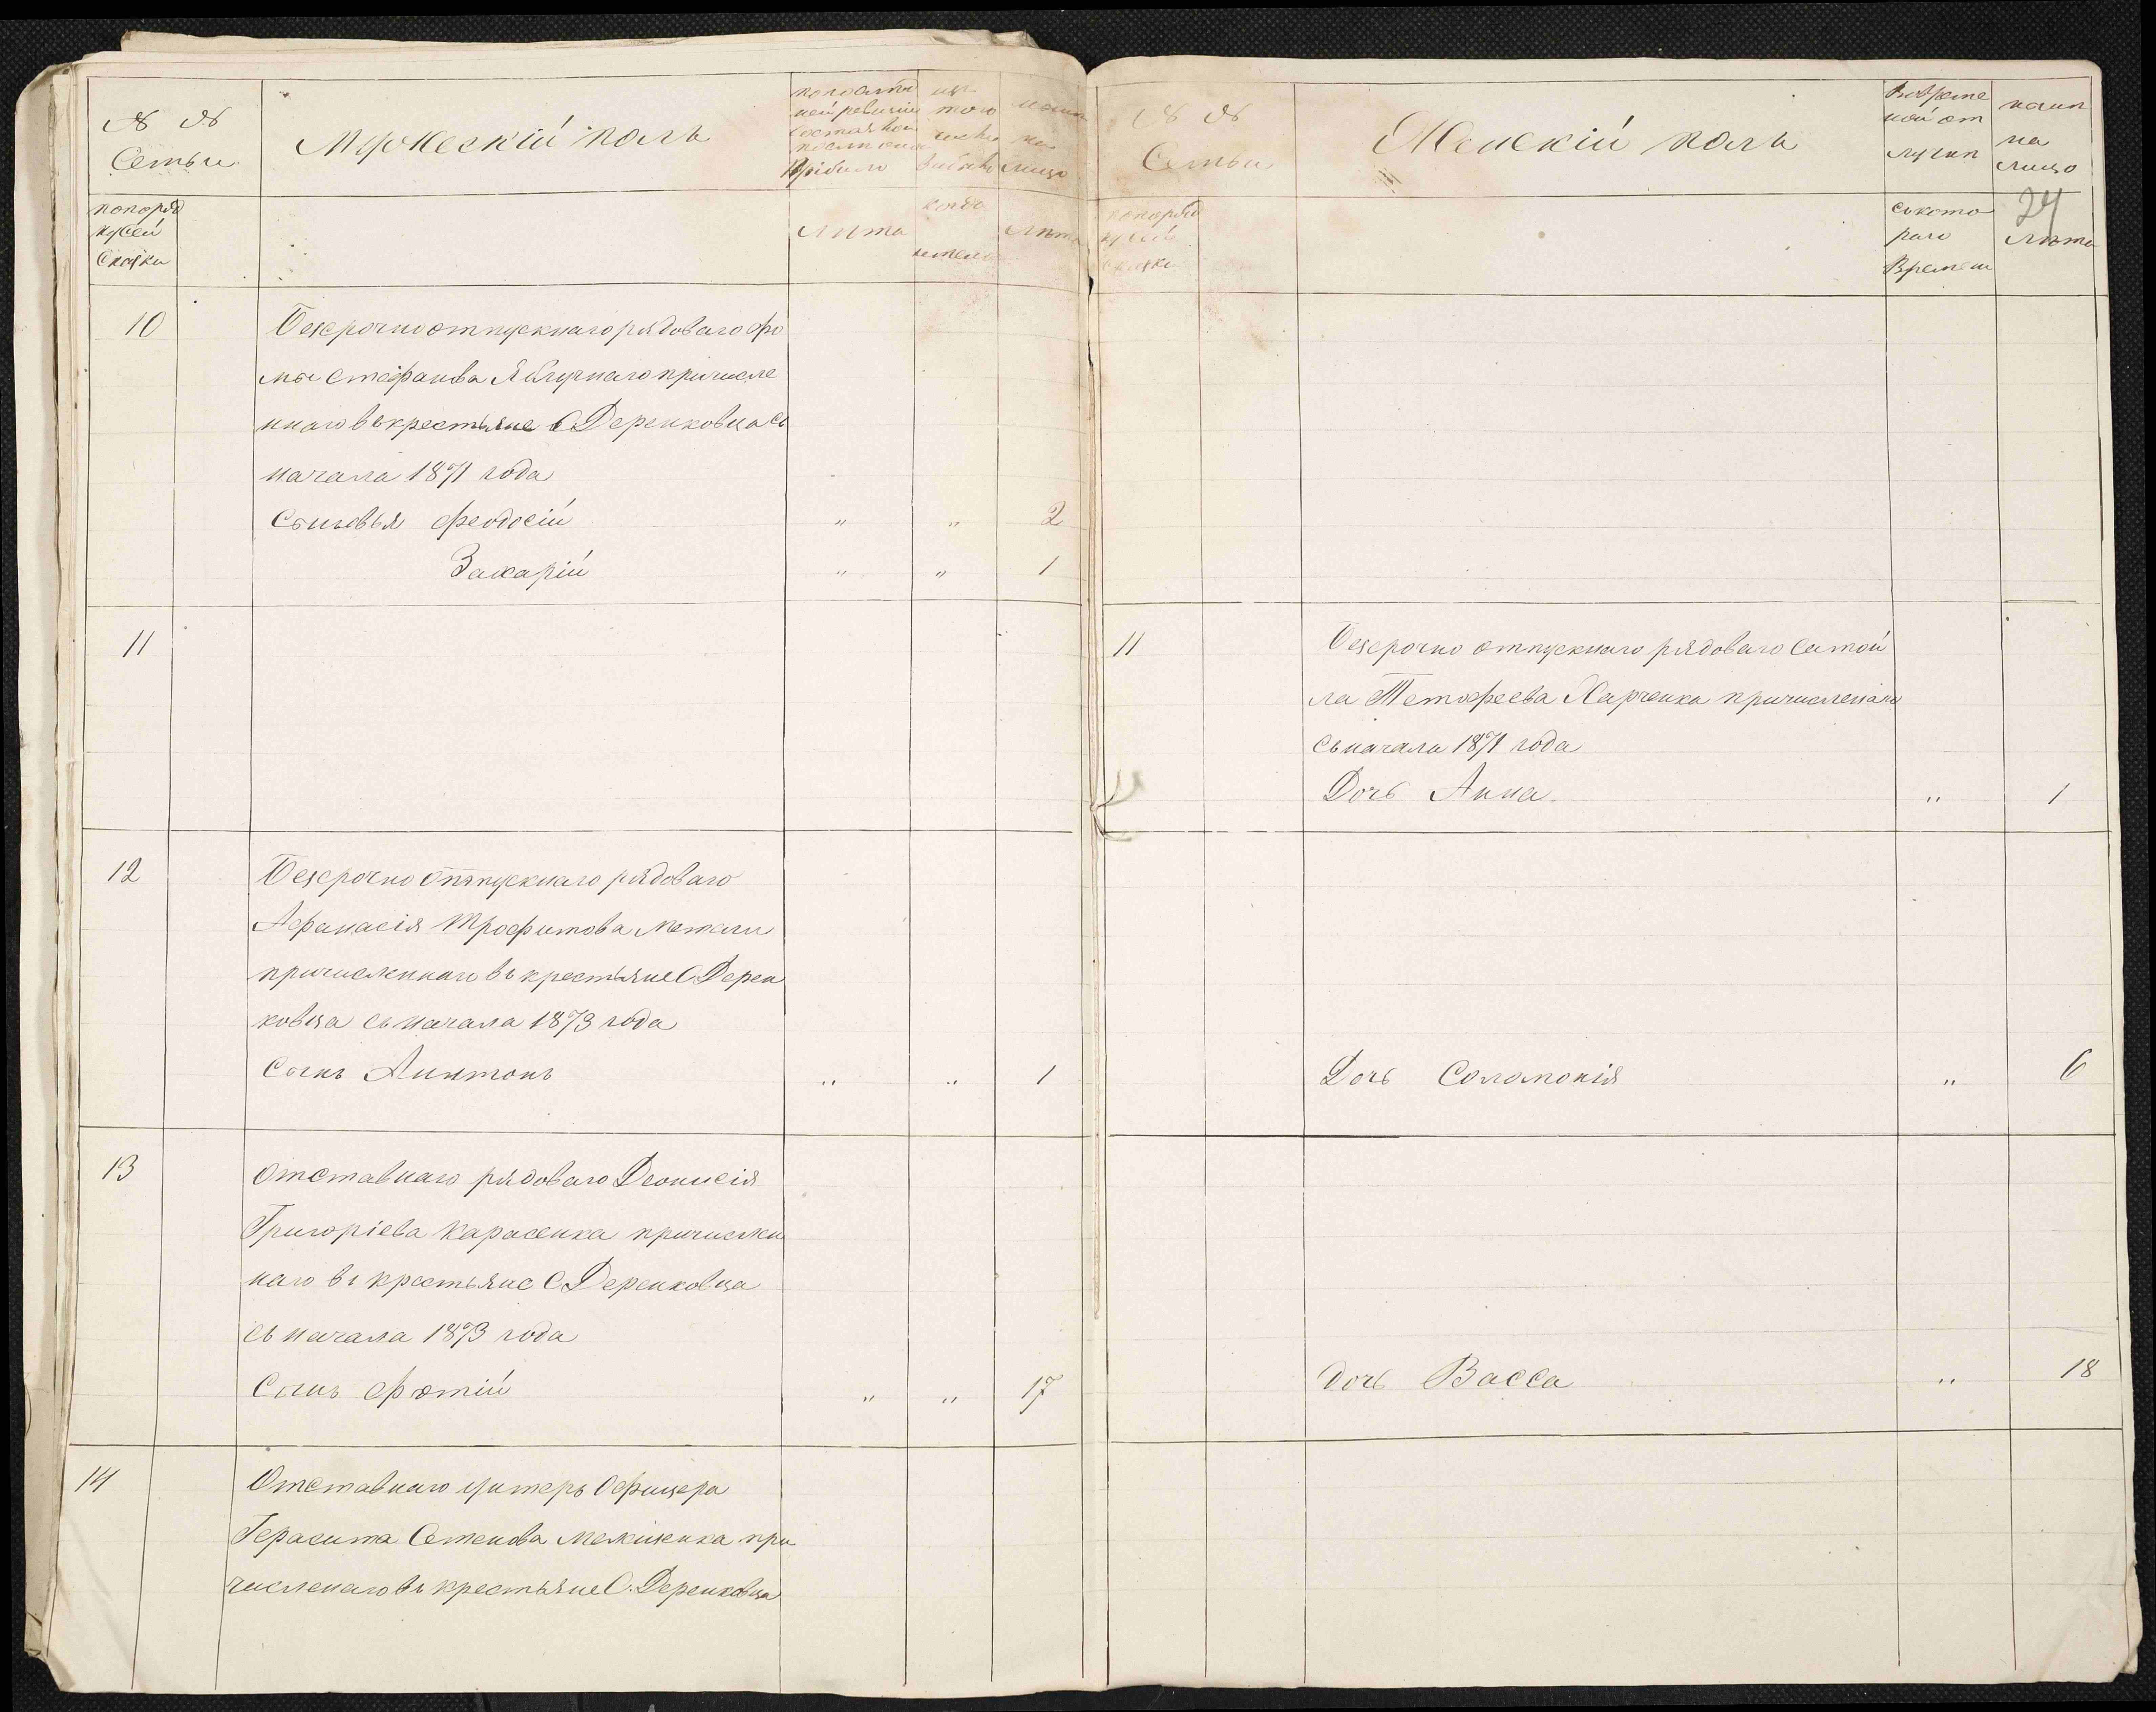 № №
Семьи
Мужескій полъ
по послѣд
ней ревизіи
состояло и
послѣ оной
Прибыло
изъ
того
числа
выбыло
нали
на
лицо
попоряд
кусей
Сказки
Лѣта
когда
именно
Лѣта
10
Безсрочноотпускнаго рядоваго Фо
мы Стефанова Яблучнаго причисле
ннаго въ крестьяне С Деренковца съ
начала 1871 года
Сыновья Феодосій " " 2
Захарій " " 1
11
12
Безсрочно отпускнаго рядоваго
Афанасія Трофимова
причисленнаго въ крестьяне С Дерен
ковца съ начала 1873 года
Сынъ Антонъ " " 1
13
отставнаго рядоваго Деонисія
Григоріева Карасенка причислен
наго въ крестьяне С Деренковца
съ начала 1873 года
Сынъ Фотій " " 17
14
Отставнаго унтеръ Офицера
Герасима Семенова при
численаго въ крестьяне С. Деренковца
№ №
Семьи
Женскій полъ
Во време
ной от
лучкѣ
нали
на
лицо
попоряд
кусей
сказки
съкото
раго
Времени
24
Лѣта
11
Безсрочно отпускнаго рядоваго Самой
ла Тетофеева Харченка причисленаго
съначала 1871 года
Дочь Анна " 1
Дочь Соломонія " 6
дочь Васса " 18